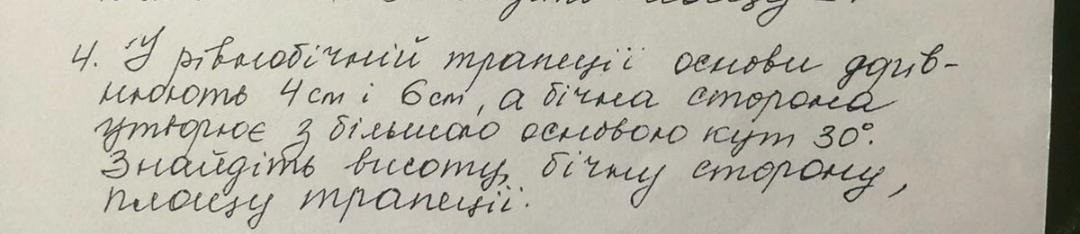 4. У рівнобічній трапеції основи дорів-
нюють 4 см і 6 см, а бічна сторона
утворює з більшою основою кут 30°.
Знайдіть висоту, бічну сторону,
площу трапеції.